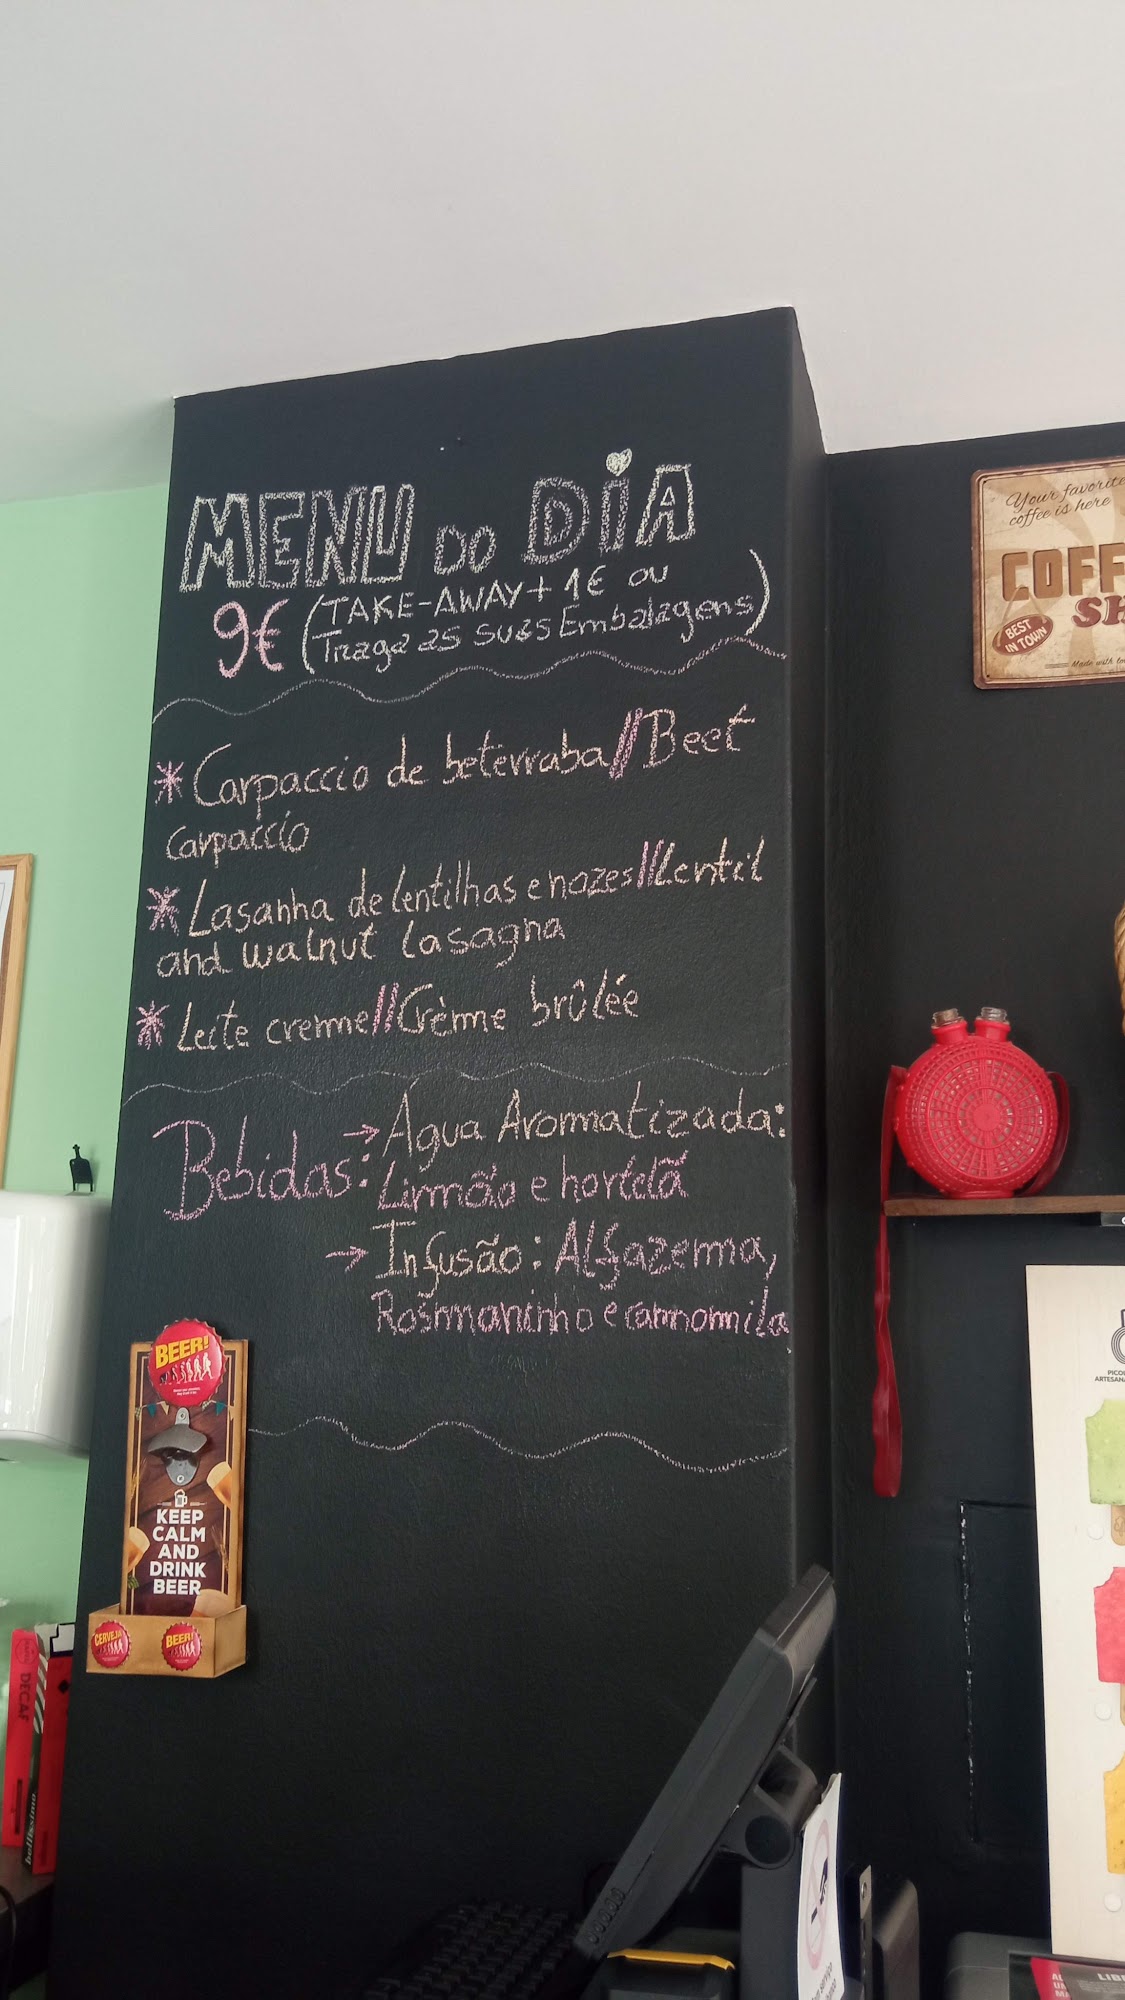 MENU DO DIA
9€ (TAKE-AWAY + 1€ OU
Traga as suas Embalagens)
* Carpaccio de beterraba // Beet
carpaccio
* Lasanha de lentilhas e nozes // Lentil
and walnut lasagna
* Leite creme // Crème brûlée
Bebidas: → Água Aromatizada:
Limão e hortelã
→ Infusão: Alfazema,
Rosmaninho e camomila
Your favorite
coffee is here
COFF
SH
BEST
IN TOWN
Made with lo
BEER!
KEEP
CALM
AND
DRINK
BEER
CERVEJA
BEER!
DECAF
bellissimo
PICO
ARTESANA
LIB